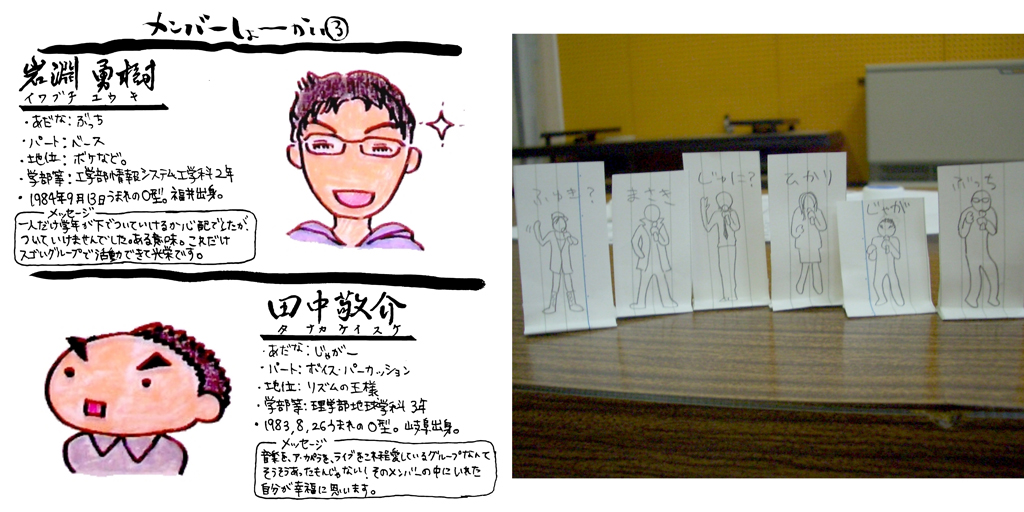 メンバーしょーかい③
岩淵 勇樹
イワブチ ユウキ
・あだな：ぶっち
・パート：ベース
・地位：ボケなど。
・学部等：工学部情報システム工学科2年
・1984年9月13日うまれのO型。福井出身。
メッセージ
一人だけ学年が下でついていけるか心配でしたが、
ついていけませんでした。ある意味。これだけ
スゴいグループで活動できて光栄です。
田中敬介
タナカケイスケ
・あだな：じゃがー
・パート：ボイス・パーカッション
・地位：リズムの王様
・学部等：理学部地球学科3年
・1983,8,26うまれのO型。岐阜出身。
メッセージ
音楽を、アカペラを、ライブをこれ程愛しているグループなんて
そうそうあったもんじゃない！そのメンバーの中にいれた
自分が幸福に思います。
ふゆき？
まさき
じゅに？
ひかり
じゃが
ぶっち